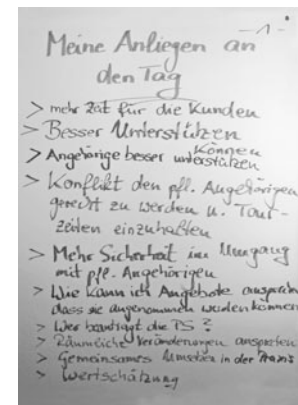 -1-
Meine Anliegen an
den Tag
> mehr Zeit für die Kunden
> Besser Unterstützen
> Angehörige besser unterstützen können
> Konflikt den pfl. Angehörigen
gerecht zu werden u. Tour-
zeiten einzuhalten
> Mehr Sicherheit im Umgang
mit pfl. Angehörigen
> Wie kann ich Angebote ansprechen
dass sie angenommen werden können
> Wer beantragt die TS ?
> Räumliche Veränderungen ansprechen
> Gemeinsames Umsetzen in der Praxis
> Wertschätzung